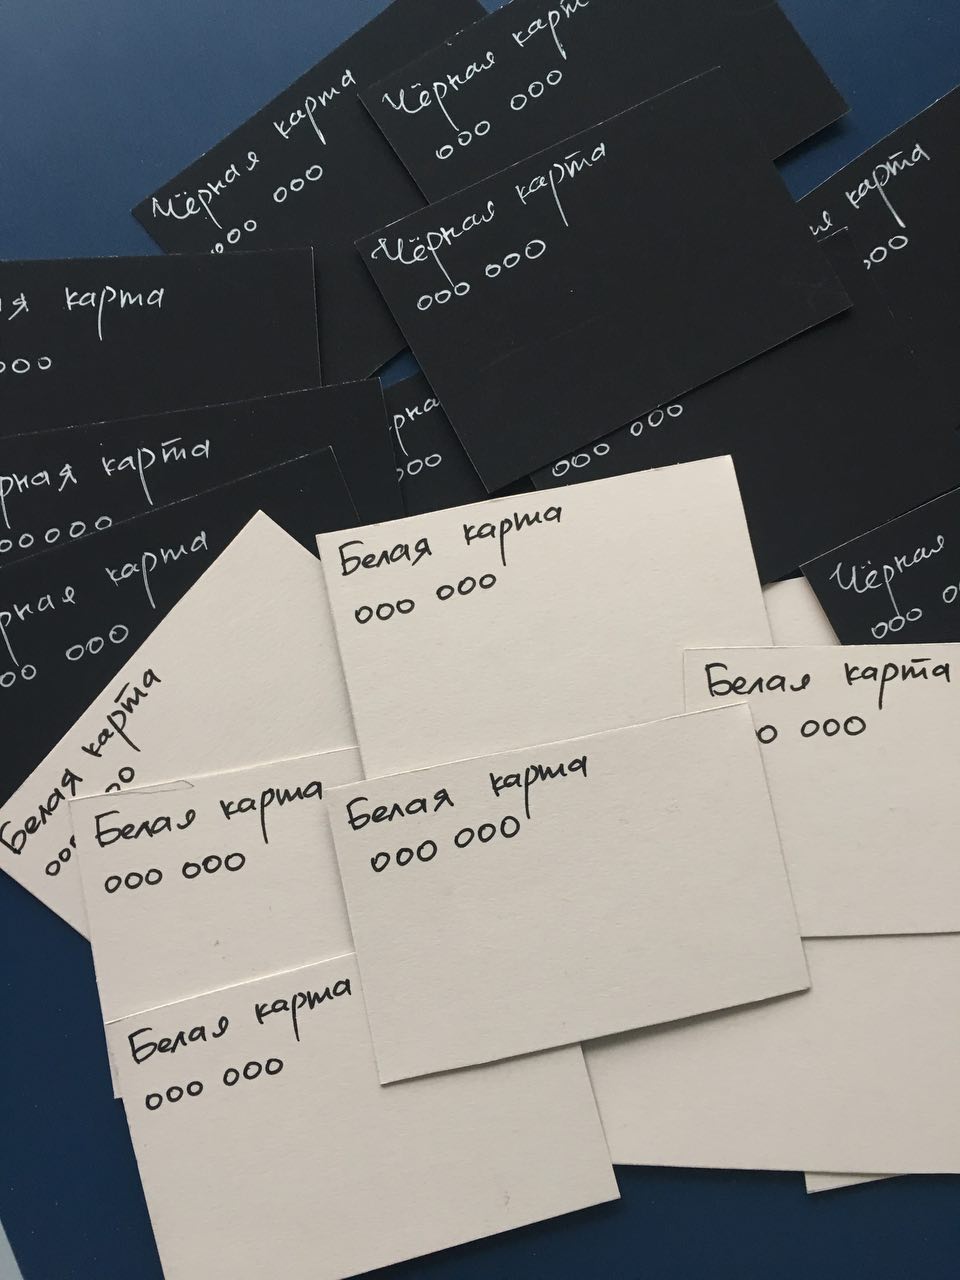 Чёрная карта
000 000
Чёрная карта
000 000
Чёрная карта
000 000
карта
00
я карта
000
рная
00
000 000
рная карта
00000
рная карта
00 000
Чёрная
000 0
Белая карта
000 000
Белая карта
000 00
Белая карта
0 000
Белая карта
000 000
Белая карта
000 000
Белая карта
000 000